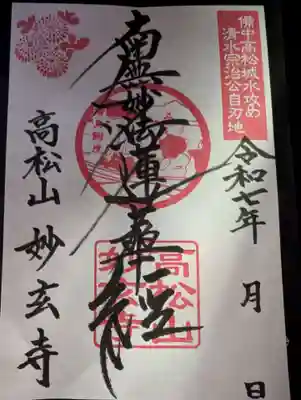 備中高松城水攻め
清水宗治公自刃地
令和七年 月 日
南無妙法蓮華経
高松山 妙玄寺